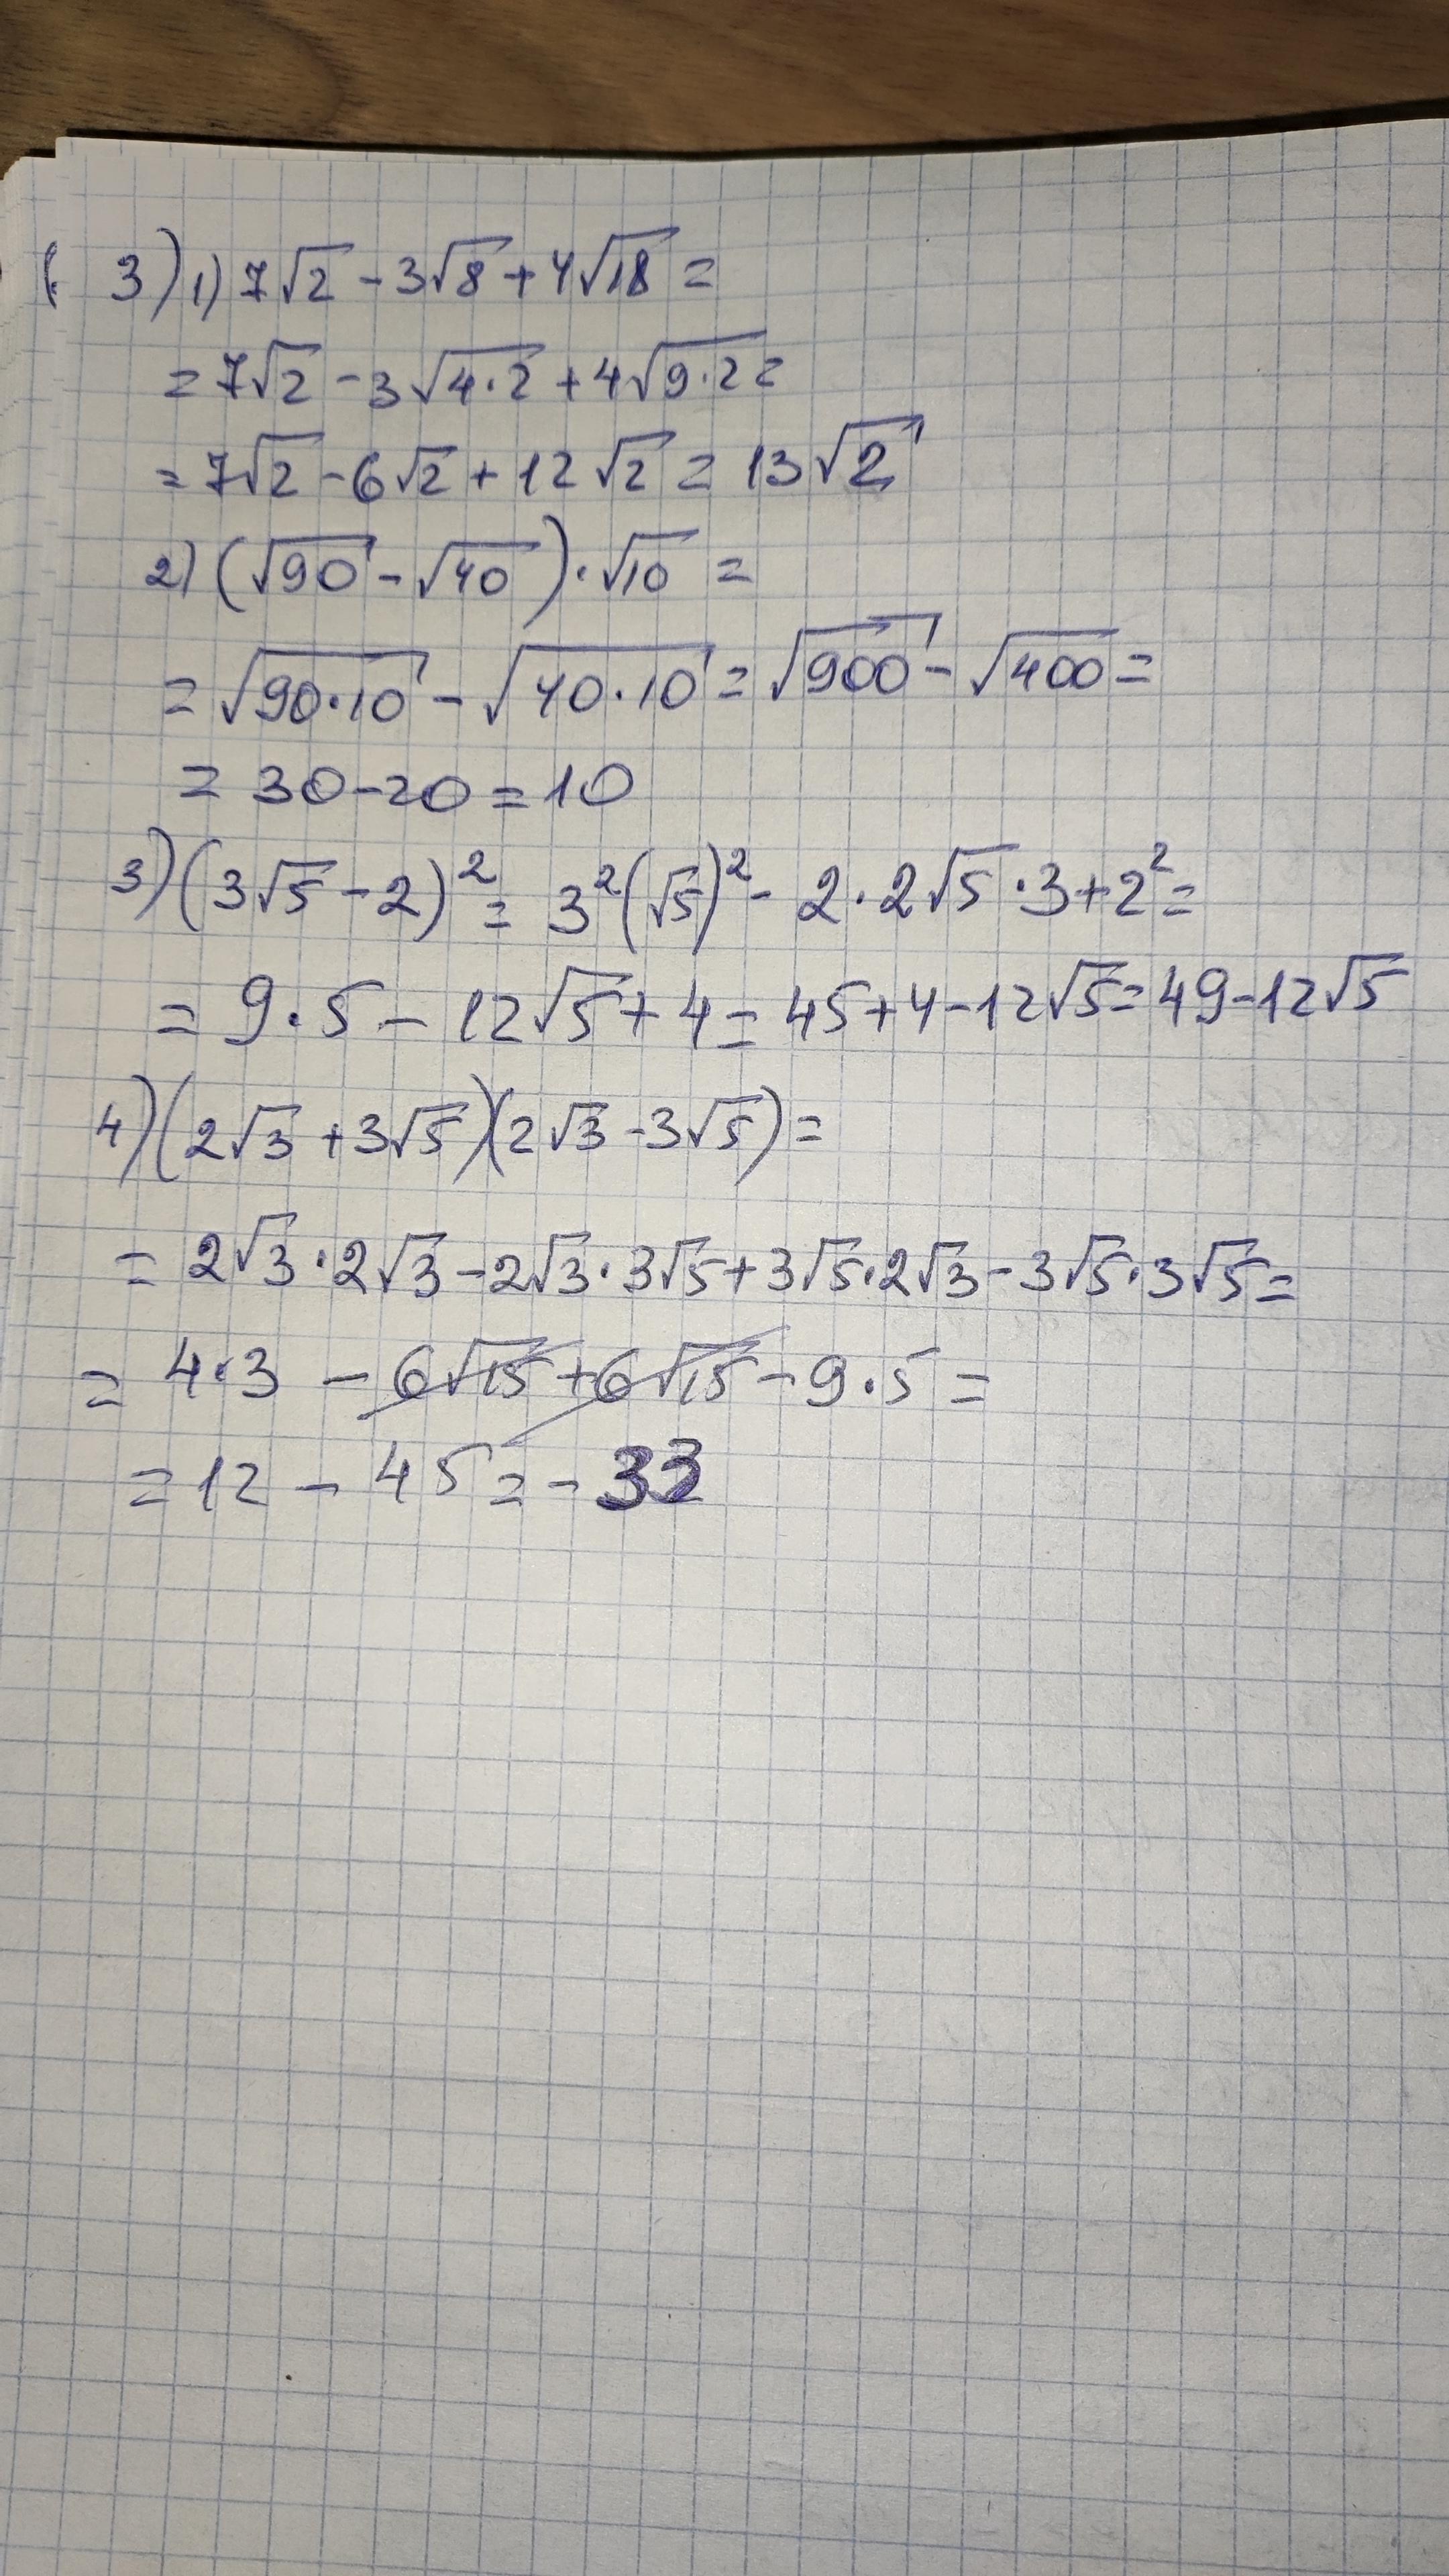 3) 1) 7√2 - 3√8 + 4√18 =
= 7√2 - 3√4·2 + 4√9·2 =
= 7√2 - 6√2 + 12√2 = 13√2
2) (√90 - √40)·√10 =
= √90·10 - √40·10 = √900 - √400 =
= 30 - 20 = 10
3) (3√5 - 2)² = 3²(√5)² - 2·2√5·3 + 2² =
= 9·5 - 12√5 + 4 = 45 + 4 - 12√5 = 49 - 12√5
4) (2√3 + 3√5)(2√3 - 3√5) =
= 2√3·2√3 - 2√3·3√5 + 3√5·2√3 - 3√5·3√5 =
= 4·3 - 6√15 + 6√15 - 9·5 =
= 12 - 45 = - 33